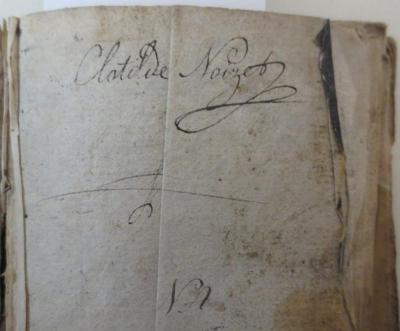 Clotilde Noizet